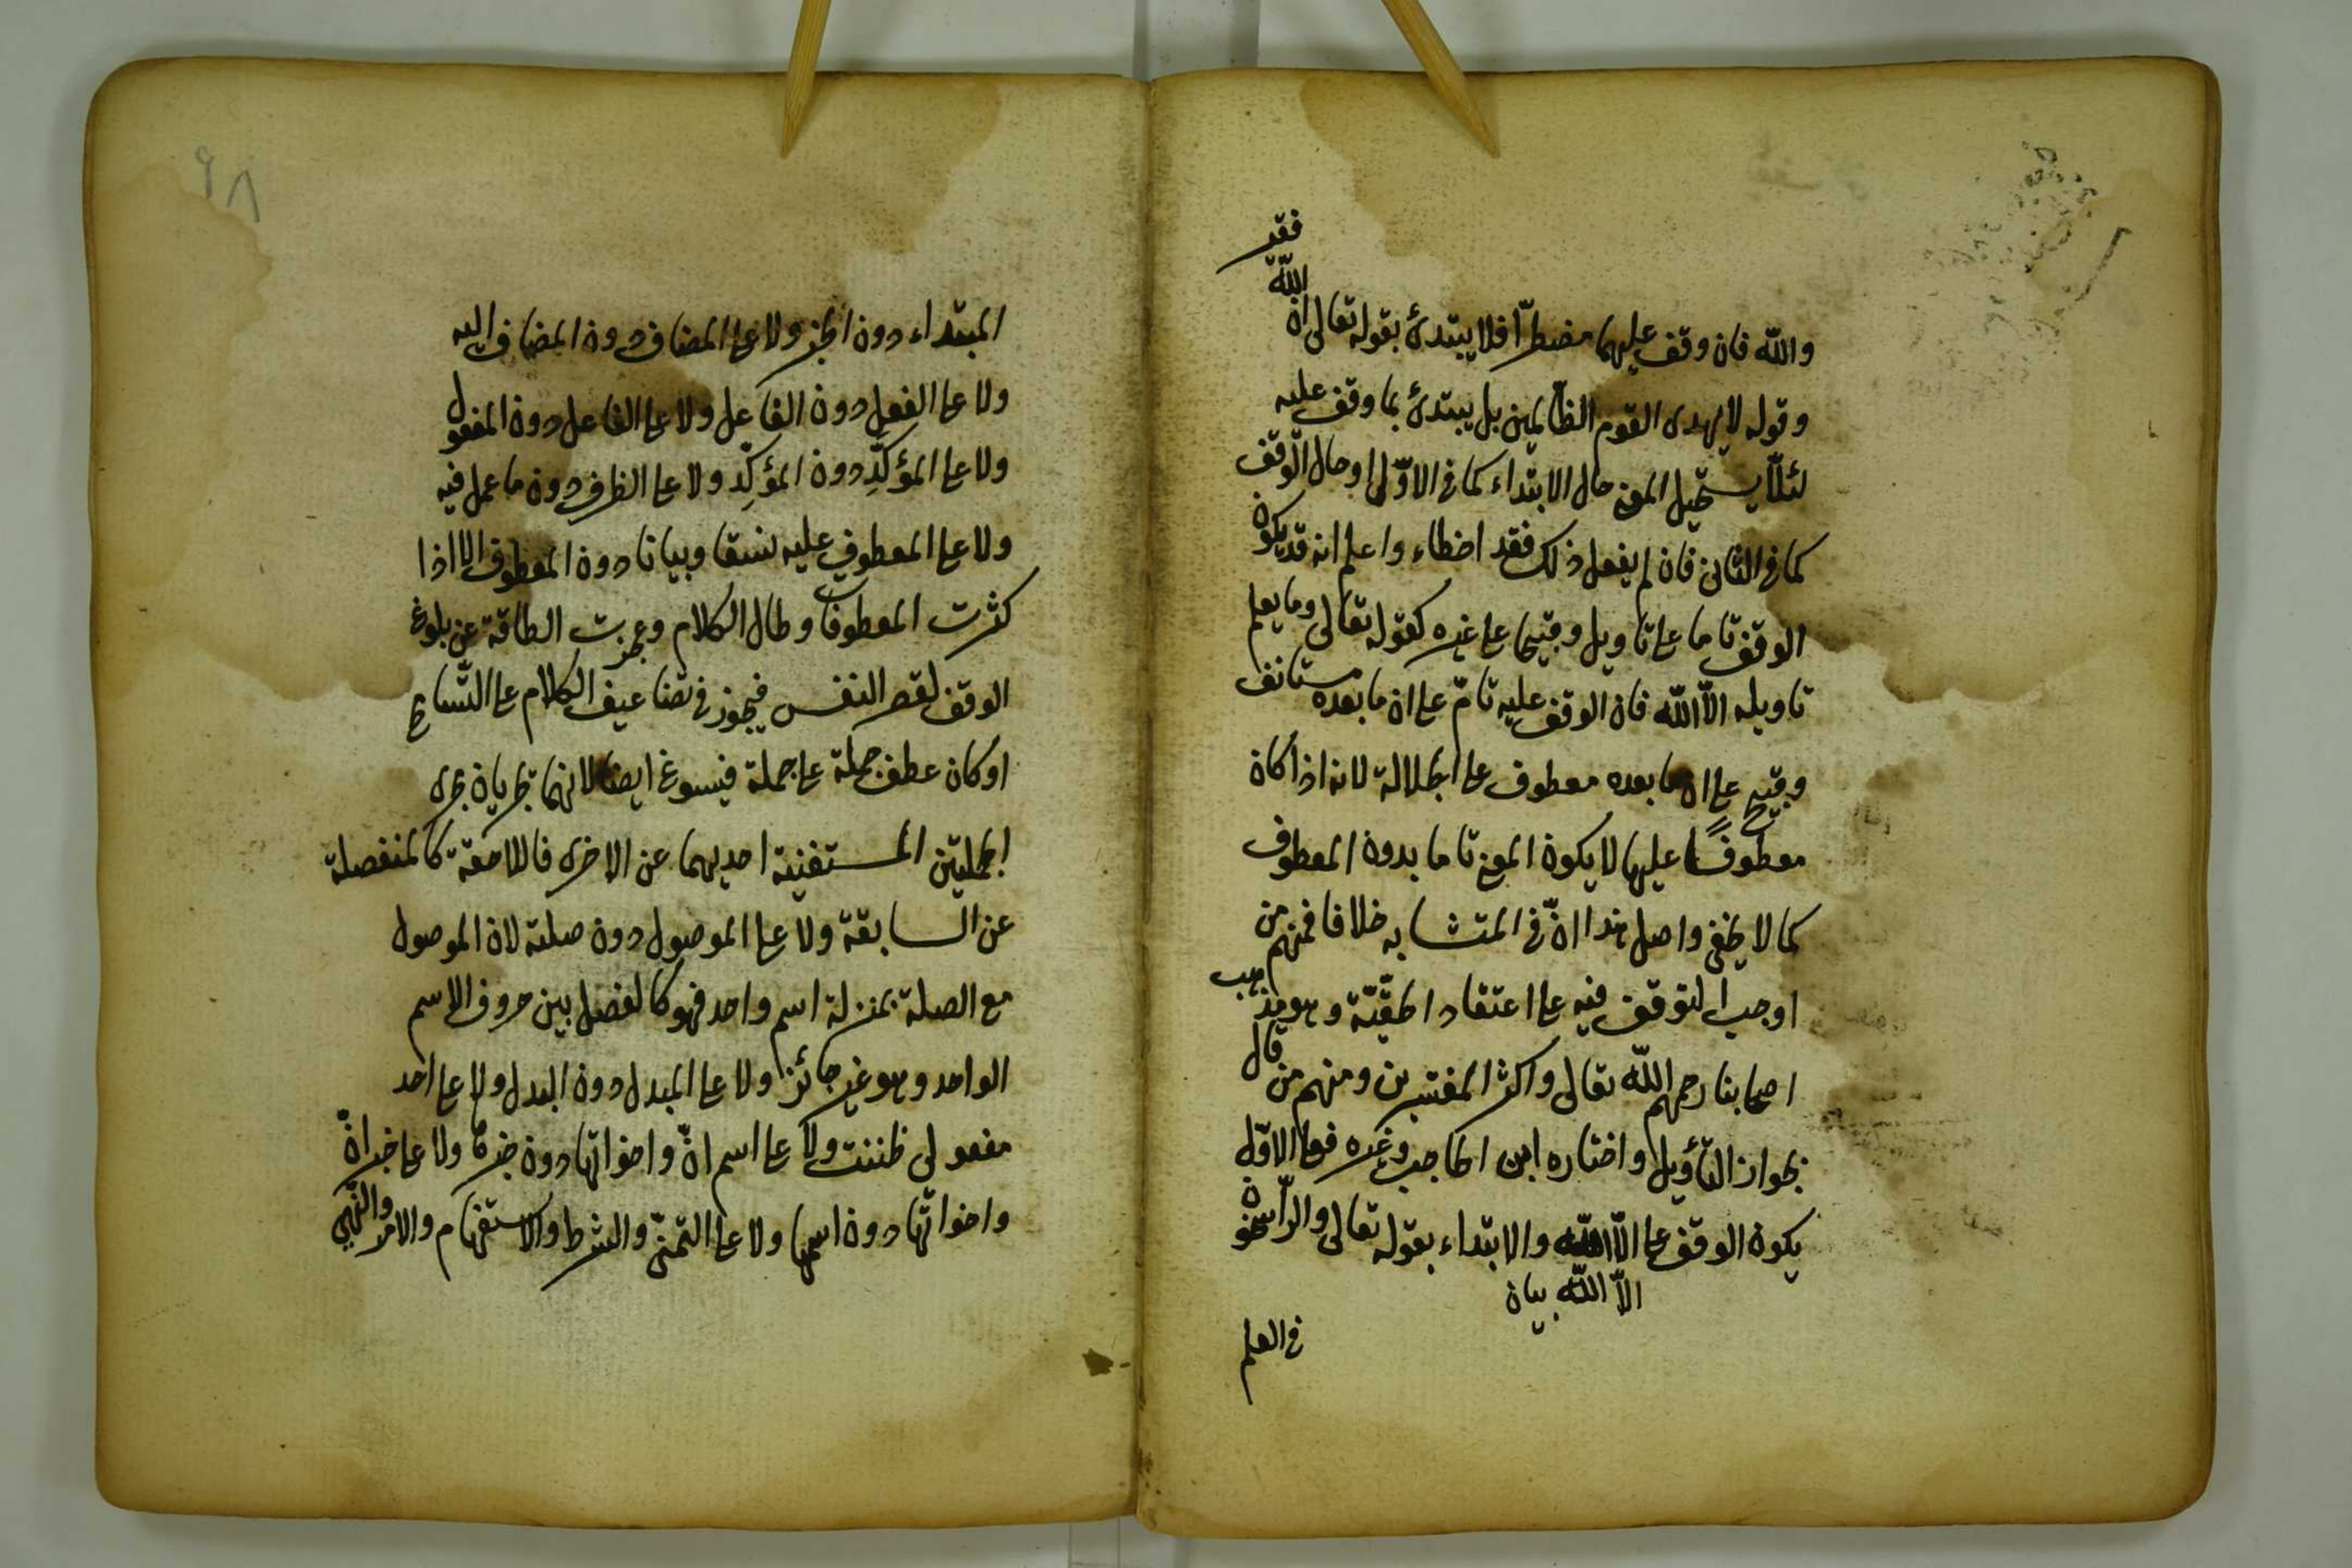 والله فان وقف عليهما مضطرّا فلا يبتدئ بقوله تعالى ان الله فقير
وقوله لا يهدى القوم الظالمين بل يبتدئ بما وقف عليه
لئلّا يستحيل المعنى حال الابتداء كما فى الاوّل او حال الوقف
كما فى الثانى فان لم يفعل ذلك فقد اخطاء واعلم انه قد يكون
الوقف تاما على تاويل وقبيحا على غيره كقوله تعالى وما يعلم
تاويله الّا اللّه فان الوقف عليه تامّ على ان ما بعده مستانف
وقبيح على ان ما بعده معطوف على الجلالة لانه اذا كان
معطوفًا عليها لا يكون المعنى تاما بدون المعطوف
كما لا يخفى واصل هذا انّ فى المتشابه خلافا فمنهم من
اوجب التوقف فيه على اعتقاد الحقّيّة وهو مذهب
اصحابنا رحمهم اللّه تعالى واكثر المفسّرين ومنهم من قال
بجواز التأويل واختاره ابن الحاجب وغيره فعلى الاوّل
يكون الوقف على الّا اللّه والابتداء بقوله تعالى والرّاسخون
الّا اللّه بيان
فى العلم
٩٨
المبتداء دون الخبر ولا على المضاف دون المضاف اليه
ولا على الفعل دون الفاعل ولا على الفاعل دون المفعول
ولا على المؤكَّد دون المؤكِّد ولا على الظرف دون ما عمل فيه
ولا على المعطوف عليه نسقا وبيانا دون المعطوف الا اذا
كثرت المعطوفات وطال الكلام وعجزت الطاقة عن بلوغ
الوقف لقصر النفس فيجوز فى تضاعيف الكلام على التّسامح
او كان عطف جملة على جملة فيسوغ ايضا لانهما تجريان مجرى
الجملتين المستغنية احديهما عن الاخرى فاللاحقة كالمنفصلة
عن السابقة ولا على الموصول دون صلته لان الموصول
مع الصلة بمنزلة اسم واحد فهو كالفصل بين حروف الاسم
الواحد وهو غير جائز ولا على المبدل دون البدل ولا على احد
مفعولى ظننت ولا على اسم انّ واخواتها دون خبرها ولا على خبر انّ
واخواتها دون اسمها ولا على التمنّى والشرط والاستفهام والامر والنّهى